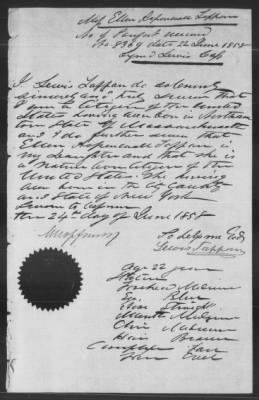 Miss Ellen Aspinwall Tappan
No of Passport issued
No. 9369 date 24 June 1858
I Lewis Tappan do solemnly
sincerely and truly swear that
I am a citizen of the United
States having been born in Northam
in State of Massachusetts
and I do further swear that
Ellen Aspinwall Tappan is
my daughter and that she is
a Native born citizen of the
United States. She having
been born in the City County
and State of New York
Sworn to before me
this 24th day of June 1858
Lewis Tappan
Age 22 years
Stature
Forehead Medium
Eyes Blue
Nose Straight
Mouth Medium
Chin Medium
Hair Brown
Complexion Fair
Face Oval